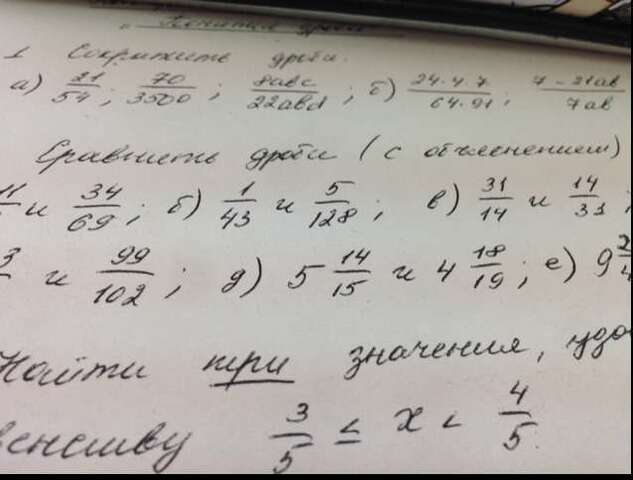 1 Сократите дроби.
а) 21/54; 70/3500; 8abc/22abd; б) 24·4·7/64·91; 7-21ab/7ab
Сравнить дроби (с объяснением)
11 и 34/69; б) 1/43 и 5/128; в) 31/14 и 14/33;
3 и 99/102; д) 5 14/15 и 4 18/19; е) 9 2/4
Найти три значения, удо
венству 3/5 ≤ x < 4/5.